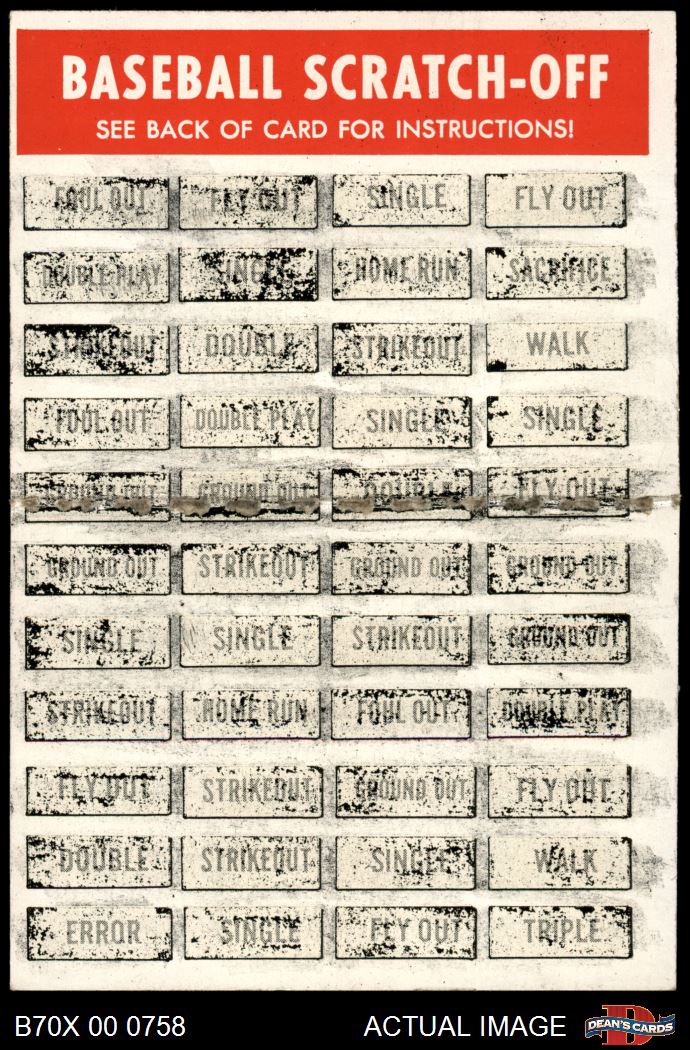 BASEBALL SCRATCH-OFF
SEE BACK OF CARD FOR INSTRUCTIONS!
FOUL OUT FLY OUT SINGLE FLY OUT
DOUBLE PLAY SINGLE HOME RUN SACRIFICE
STRIKEOUT DOUBLE STRIKEOUT WALK
FOUL OUT DOUBLE PLAY SINGLE SINGLE
GROUND OUT GROUND OUT DOUBLE FLY OUT
GROUND OUT STRIKEOUT GROUND OUT GROUND OUT
SINGLE SINGLE STRIKEOUT GROUND OUT
STRIKEOUT HOME RUN FOUL OUT DOUBLE PLAY
FLY OUT STRIKEOUT GROUND OUT FLY OUT
DOUBLE STRIKEOUT SINGLE WALK
ERROR SINGLE FLY OUT TRIPLE
B70X 00 0758 ACTUAL IMAGE D DEAN'S CARDS